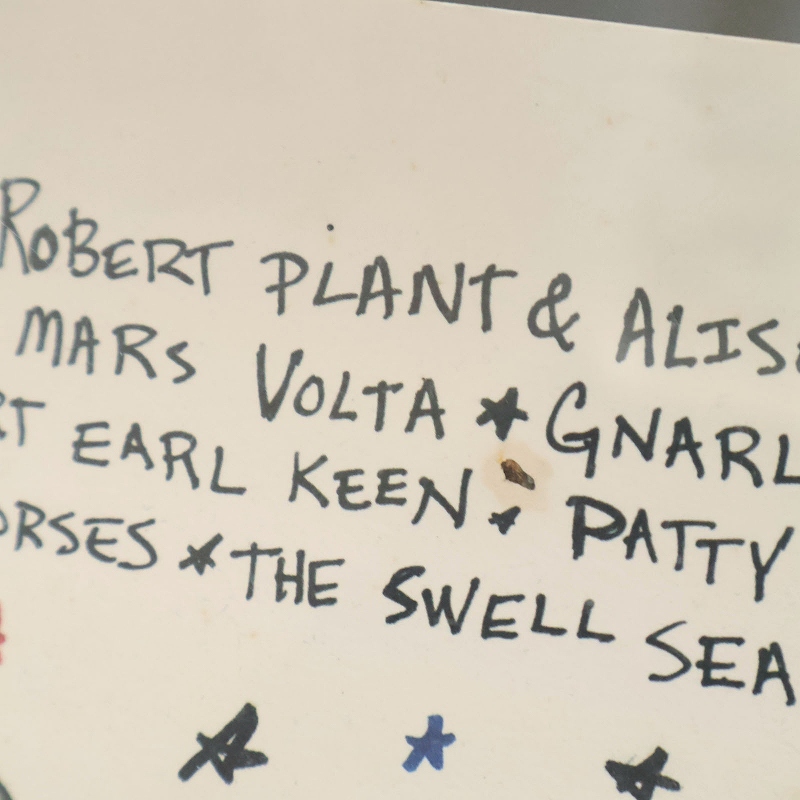 ROBERT PLANT & ALIS
MARS VOLTA ★ GNARL
RT EARL KEEN ★ PATTY
ORSES ★ THE SWELL SEA